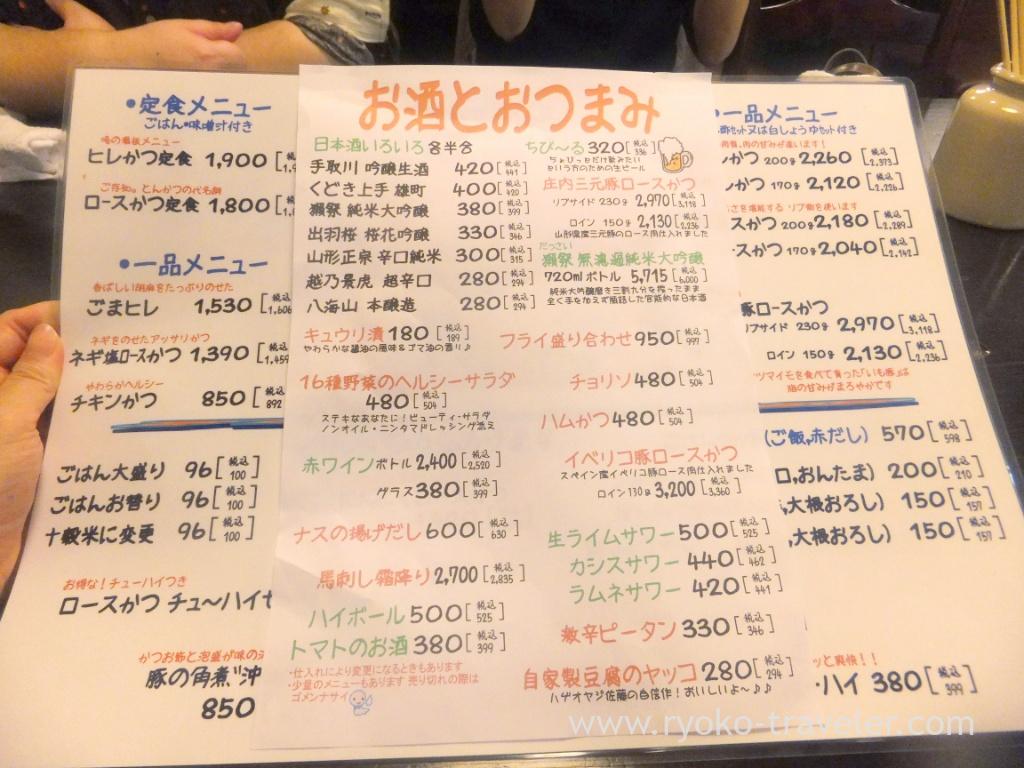 •定食メニュー
ごはん・味噌汁付き
ヒレかつ定食 1,900 [税込
ご存知。とんかつの代名詞
ロースかつ定食 1,800 [税込
•一品メニュー
香ばしい胡麻をたっぷりのせた
ごまヒレ 1,530 [税込 1,606
ネギをのせたアッサリかつ
ネギ塩ロースかつ 1,390 [税込 1,459
やわらかヘルシー
チキンかつ 850 [税込 892
ごはん大盛り 96 [税込 100]
ごはんお替り 96 [税込 100]
十穀米に変更 96 [税込 100]
お得な!チューハイつき
ロースかつ チュ〜ハイセ
かつお節と泡盛が味の
豚の角煮"沖
850
お酒とおつまみ
日本酒いろいろ 各半合
手取川 吟醸生酒 420 [税込 441]
くどき上手 雄町 400 [税込 420]
獺祭 純米大吟醸 380 [税込 399]
出羽桜 桜花吟醸 330 [税込 346]
山形正宗 辛口純米 300 [税込 315]
越乃景虎 超辛口 280 [税込 294]
八海山 本醸造 280 [税込 294]
キュウリ漬 180 [税込 189]
やわらかな醤油の風味&ゴマ油の香り♪
16種野菜のヘルシーサラダ
480 [税込 504]
ステキなあなたに!ビューティ-サラダ
ノンオイル・ニンタマドレッシング添え
赤ワイン ボトル 2,400 [税込 2,520]
グラス 380 [税込 399]
ナスの揚げだし 600 [税込 630]
馬刺し霜降り 2,700 [税込 2,835]
ハイボール 500 [税込 525]
トマトのお酒 380 [税込 399]
・仕入れにより変更になるときもあります
・少量のメニューもあります 売り切れの際は
ゴメンナサイ
ちび〜る 320 [税込 336]
ちょびっとだけ飲みたい
という方のための生ビール
庄内三元豚ロースかつ
リブサイド 230g 2,970 [税込 3,118]
ロイン 150g 2,130 [税込 2,236]
山形県産三元豚のロース肉仕入れました
だっさい
獺祭 無濾過純米大吟醸
720mlボトル 5,715 [税込 6,000]
純米大吟醸磨き三割九分を搾ったまま
全く手を加えず瓶詰した官能的な日本酒
フライ盛り合わせ 950 [税込 997]
チョリソ 480 [税込 504]
ハムかつ 480 [税込 504]
イベリコ豚ロースかつ
スペイン産イベリコ豚ロース肉仕入れました
ロイン130g 3,200 [税込 3,360]
生ライムサワー 500 [税込 525]
カシスサワー 440 [税込 462]
ラムネサワー 420 [税込 441]
激辛ピータン 330 [税込 346]
自家製豆腐のヤッコ 280 [税込 294]
ハゲオヤジ佐藤の自信作!おいしいよ〜♪♪
一品メニュー
セット又は白しょうゆセット付き
肉の甘みが違います!
かつ 200g 2,260 [税込 2,373]
かつ 170g 2,120 [税込 2,226]
さを堪能する リブ側を使います
スかつ 200g 2,180 [税込 2,289]
-スかつ 170g 2,040 [税込 2,142]
豚ロースかつ
リブサイド 230g 2,970 [税込 3,118]
ロイン 150g 2,130 [税込 2,236]
ツマイモを食べて育った「いも豚」は
脂の甘みがまろやかです
(ご飯,赤だし) 570 [税込 598]
口,おんたま) 200 [税込 210]
,大根おろし) 150 [税込 157]
,大根おろし) 150 [税込 157]
ッと爽快!!
・ハイ 380 [税込 399]
www.ryoko-traveler.com